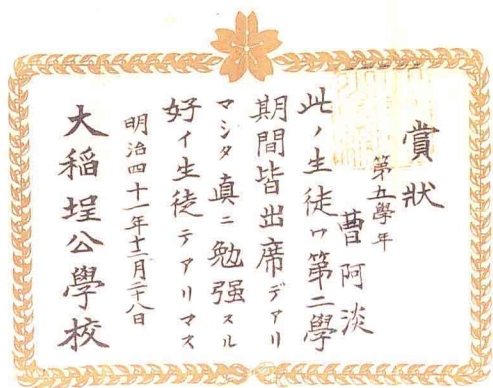 賞狀
第五學年
曹阿淡
此ノ生徒ワ第二學
期間皆出席デアリ
マシタ真ニ勉强スル
好イ生徒デアリマス
明治四十一年十二月二十八日
大稻埕公學校